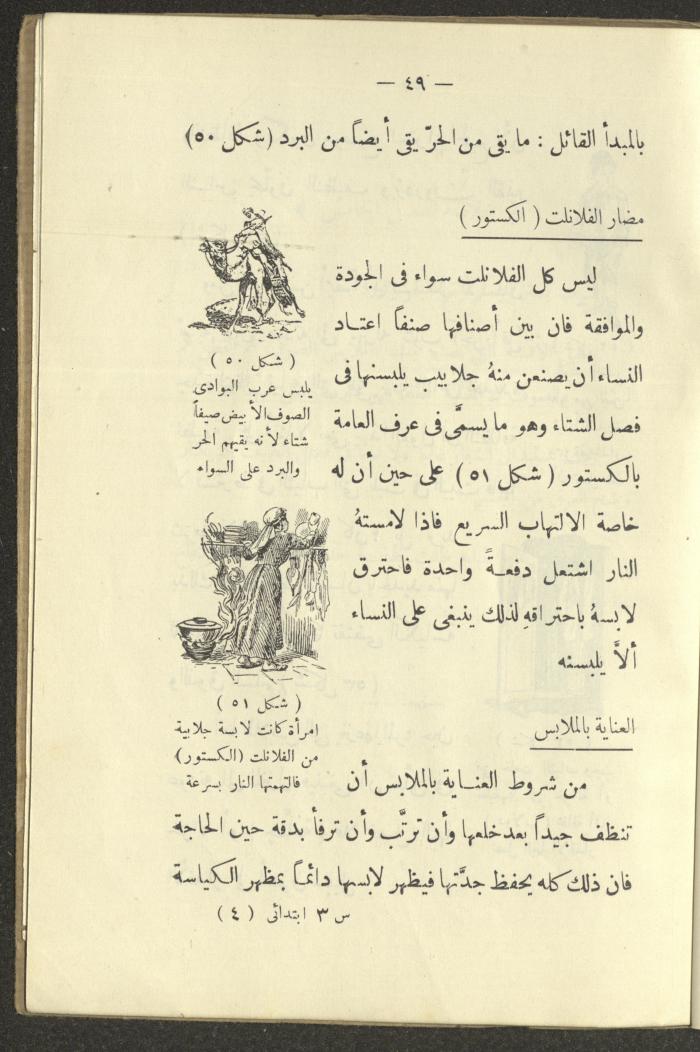 — ٤٩ —
بالمبدأ القائل : ما يقى من الحرّ يقى أيضاً من البرد (شكل ٥٠)
مضار الفلانلت ( الكستور )
ليس كل الفلانلت سواء فى الجودة
والموافقة فان بين أصنافها صنفاً اعتـاد
النساء أن يصنعن منهُ جلابيب يلبسنها فى
فصل الشتاء وهو ما يسمَّى فى عرف العامة
بالكستور ( شكل ٥١ ) على حين أن له
خاصة الالتهاب السريع فاذا لامستهُ
النار اشتعل دفعـةً واحدة فاحترق
لابسهُ باحتراقهِ لذلك ينبغى على النساء
ألاَّ يلبسنه
( شكل ٥٠ )
يلبس عرب البوادى
الصوف الأبيض صيفاً
شتاء لأنه يقيهم الحر
والبرد على السواء
( شكل ٥١ )
امرأة كانت لابسة جلابية
من الفلانلت (الكستور)
فالتهمتها النار بسرعة
العناية بالملابس
من شروط العنـاية بالملابس أن
تنظف جيداً بعد خلعها وأن ترتَّب وأن ترفأ بدقة حين الحاجة
فان ذلك كله يحفظ جدَّتها فيظهر لابسها دائمـاً بمظهر الكياسة
س ٣ ابتدائى ( ٤ )